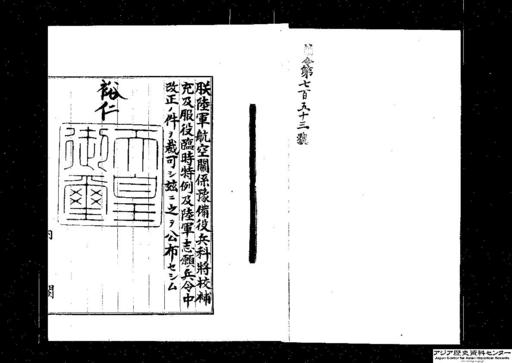 勅令第七百五十三號
朕陸軍航空關係豫備役兵科將校補
充及服役臨時特例及陸軍志願兵令中
改正ノ件ヲ裁可シ茲ニ之ヲ公布セシム
裕仁
天皇
御璽
内閣
アジア歴史資料センター
Japan Center for Asian Historical Records